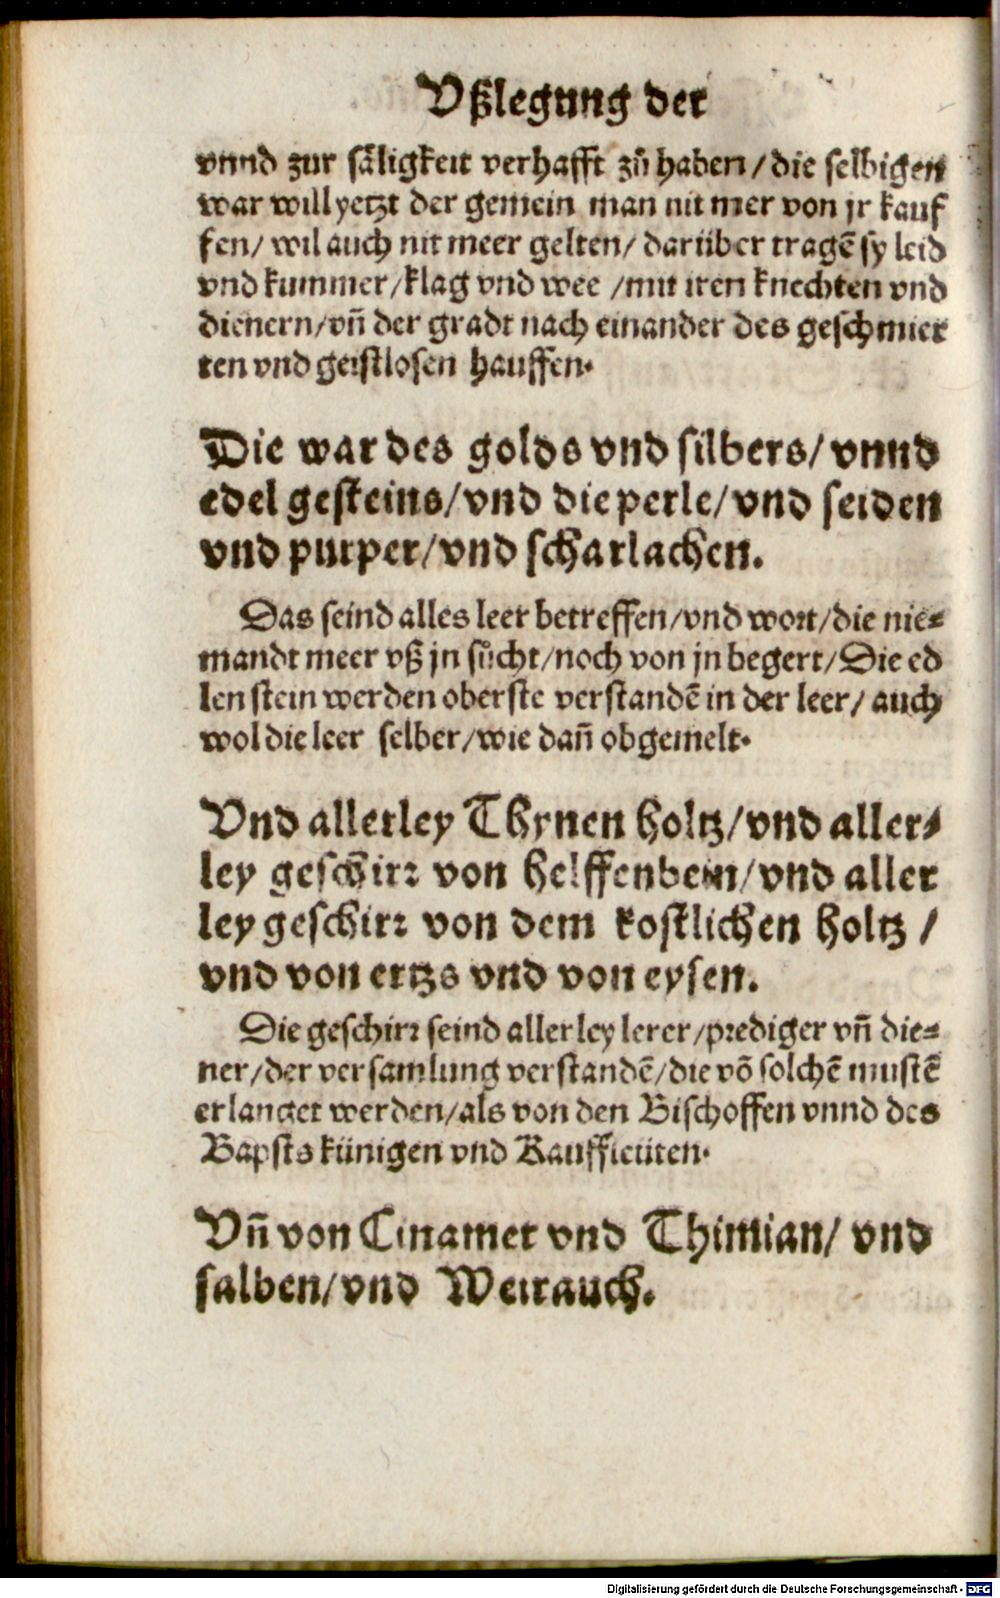 Vßlegung der
vnnd zur säligkeit verhafft zů haben/die selbigen
war will yetzt der gemein man nit mer von jr kauf
fen/ wil auch nit meer gelten/ darüber tragẽ sy leid
vnd kummer/klag vnd wee /mit iren knechten vnd
dienern/vñ der gradt nach einander des geschmier
ten vnd geistlosen hauffen.
Die war des golds vnd silbers/ vnnd
edel gesteins/vnd die perle/vnd seiden
vnd purper/vnd scharlachen.
Das seind alles leer betreffen/vnd wort/die nie⸗
mandt meer vß jn sůcht/noch von jn begert/Die ed
len stein werden oberste verstandẽ in der leer/ auch
wol die leer selber/wie dañ obgemelt.
Vnd allerley Thynen holtz/vnd aller⸗
ley geschirr von helffenbein/vnd aller
ley geschirr von dem kostlichen holtz /
vnd von ertzs vnd von eysen.
Die geschirr seind allerley lerer/prediger vñ die⸗
ner/der versamlung verstandẽ/die võ solchẽ mustẽ
erlanget werden/als von den Bischoffen vnnd des
Bapsts künigen vnd Kauffleüten.
Vñ von Cinamet vnd Thimian/ vnd
salben/vnd Weirauch.
Digitalisierung gefördert durch die Deutsche Forschungsgemeinschaft - DFG